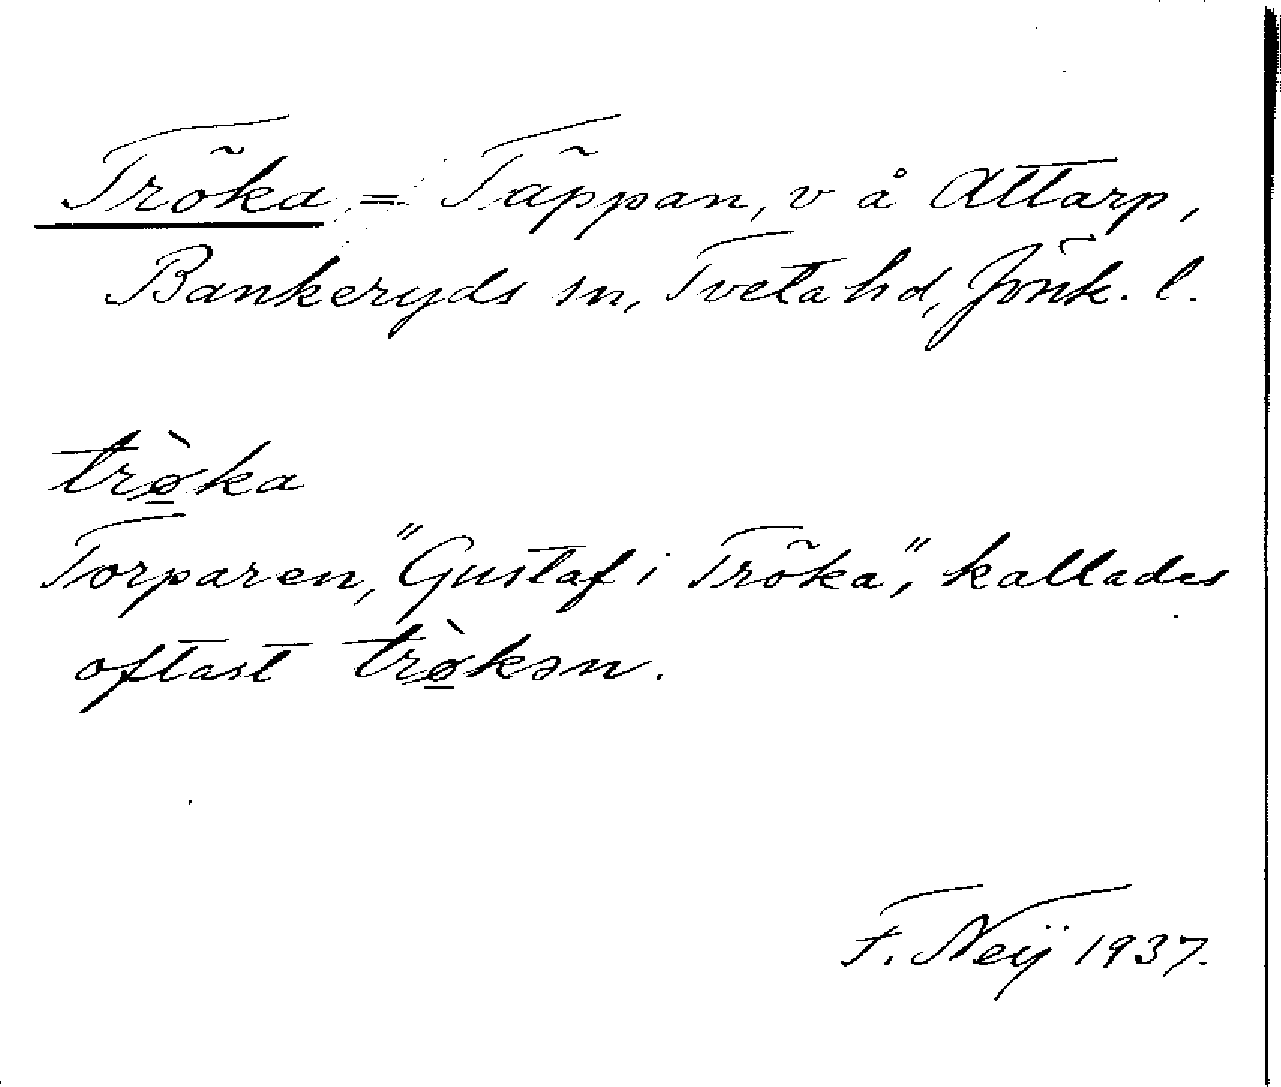 Tröka = Täppan, v å Attarp,
Bankeryds sn, Tveta hd, Jönk. l.
trø̲̀ka
Torparen, "Gustaf i Tröka", kallades
oftast trø̲̀kən.
F. Neij 1937.